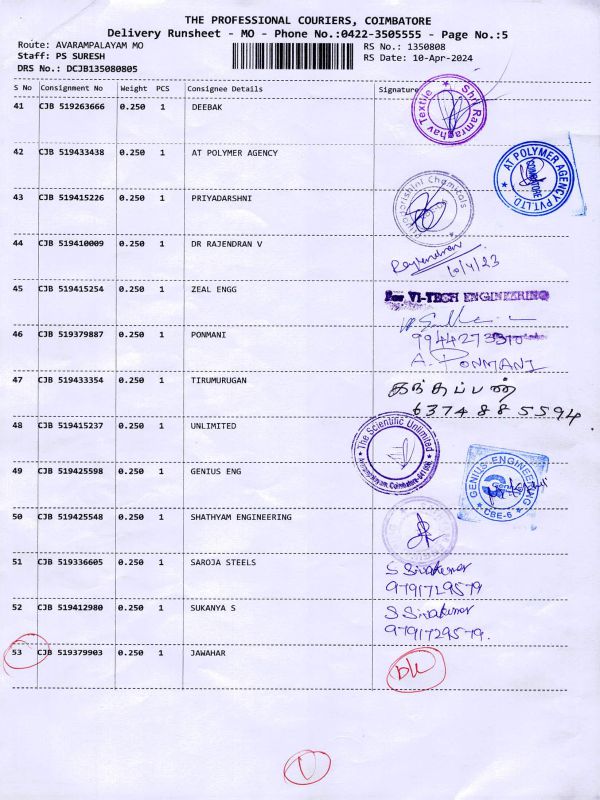 THE PROFESSIONAL COURIERS, COIMBATORE
Delivery Runsheet - MO - Phone No.:0422-3505555 - Page No.:5
Route: AVARAMPALAYAM MO
RS No.: 1350808
Staff: PS SURESH
RS Date: 10-Apr-2024
DRS No.: DCJB135080805
S No Consignment No Weight PCS Consignee Details Signature
41 CJB 519263666 0.250 1 DEEBAK
Shri Ramraghav Textile
42 CJB 519433438 0.250 1 AT POLYMER AGENCY
AT POLYMER AGENCY PVT.LTD
COIMBATORE
43 CJB 519415226 0.250 1 PRIYADARSHNI
44 CJB 519410009 0.250 1 DR RAJENDRAN V
Rajendran
10/4/23
45 CJB 519415254 0.250 1 ZEAL ENGG
For VI-TECH ENGINEERING
46 CJB 519379887 0.250 1 PONMANI
A. PONMANI
47 CJB 519433354 0.250 1 TIRUMURUGAN
கந்தப்பண்
6374885594
48 CJB 519415237 0.250 1 UNLIMITED
The Scientific Unlimited
49 CJB 519425598 0.250 1 GENIUS ENG
GENIUS ENGINEERING
CBE-6
50 CJB 519425548 0.250 1 SHATHYAM ENGINEERING
51 CJB 519336605 0.250 1 SAROJA STEELS
S Sivakumar
9791729579
52 CJB 519412980 0.250 1 SUKANYA S
S Sivakumar
9791729579.
53 CJB 519379903 0.250 1 JAWAHAR